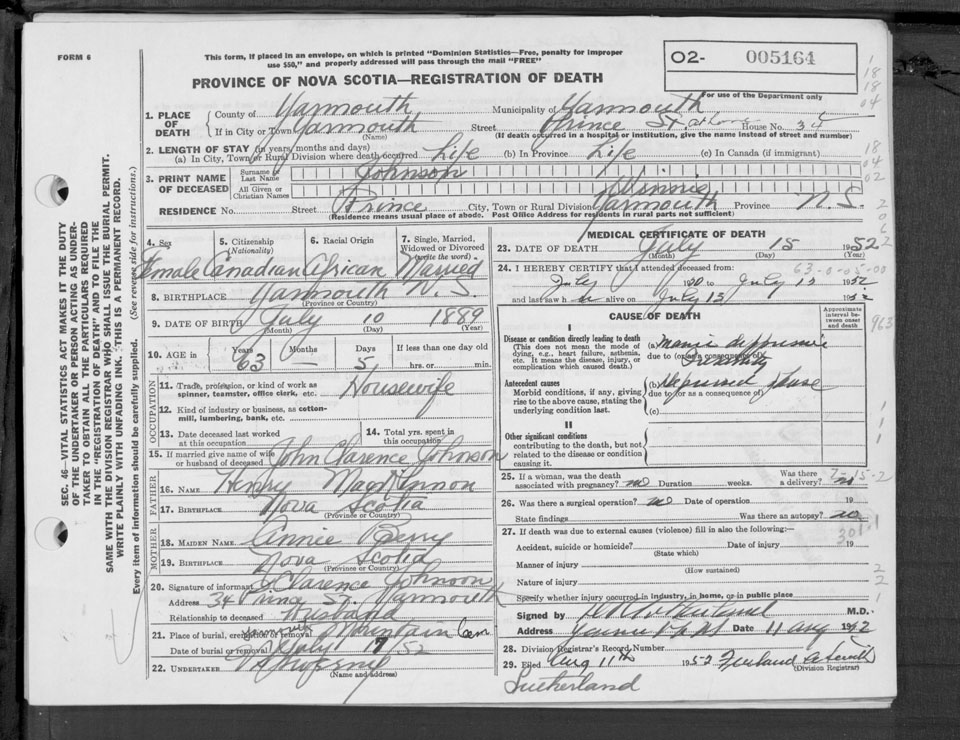 FORM 6
This form, if placed in an envelope, on which is printed "Dominion Statistics—Free, penalty for improper
use $50," and properly addressed will pass through the mail "FREE"
PROVINCE OF NOVA SCOTIA—REGISTRATION OF DEATH
O2- 005164
For use of the Department only
1. PLACE OF DEATH
County of Yarmouth Municipality of Yarmouth
If in City or Town Yarmouth Street Prince St. at home House No. 34
(Name) (If death occurred in a hospital or institution, give the name instead of street and number)
2. LENGTH OF STAY (in years, months and days)
(a) In City, Town or Rural Division where death occurred Life (b) In Province Life (c) In Canada (if immigrant)
3. PRINT NAME OF DECEASED
Surname or Last Name Johnson
All Given or Christian Names Winnie
RESIDENCE No. Street Prince City, Town or Rural Division Yarmouth Province N.S.
(Residence means usual place of abode. Post Office Address for residents in rural parts not sufficient)
4. Sex Female
5. Citizenship (Nationality) Canadian
6. Racial Origin African
7. Single, Married, Widowed or Divorced (write the word) Married
8. BIRTHPLACE Yarmouth N.S.
(Province or Country)
9. DATE OF BIRTH July 10 1889
(Month) (Day) (Year)
10. AGE in Years 63 Months Days 5 If less than one day old
hrs. or min.
OCCUPATION
11. Trade, profession, or kind of work as spinner, teamster, office clerk, etc. Housewife
12. Kind of industry or business, as cotton-mill, lumbering, bank, etc.
13. Date deceased last worked at this occupation
14. Total yrs. spent in this occupation
15. If married give name of wife or husband of deceased John Clarence Johnson
FATHER
16. NAME Henry
17. BIRTHPLACE Nova Scotia
(Province or Country)
MOTHER
18. MAIDEN NAME Annie Berry
19. BIRTHPLACE Nova Scotia
(Province or Country)
20. Signature of informant J Clarence Johnson
Address 34 Prince St. Yarmouth
Relationship to deceased Husband
21. Place of burial, cremation or removal Mountain Cem
Date of burial or removal July 17/52
22. UNDERTAKER
(Name and address)
MEDICAL CERTIFICATE OF DEATH
23. DATE OF DEATH July 15 1952
(Month) (Day) (Year)
24. I HEREBY CERTIFY that I attended deceased from:
63-0-05-00
July 1920 to July 15 1952
and last saw h alive on July 15 1952
CAUSE OF DEATH
Approximate interval between onset and death
I
Disease or condition directly leading to death
(This does not mean the mode of dying, e.g., heart failure, asthenia, etc. It means the disease, injury, or complication which caused death.)
(a) Manic
due to (or as a consequence of)
Antecedent causes
Morbid conditions, if any, giving rise to the above cause, stating the underlying condition last.
(b)
due to (or as a consequence of)
(c)
II
Other significant conditions
contributing to the death, but not related to the disease or condition causing it.
25. If a woman, was the death associated with pregnancy? no Duration weeks. Was there a delivery? no
7-15-2
26. Was there a surgical operation? no Date of operation 19
State findings Was there an autopsy? no
27. If death was due to external causes (violence) fill in also the following:—
Accident, suicide or homicide? Date of injury 19
(State which)
Manner of injury
(How sustained)
Nature of injury
Specify whether injury occurred in industry, in home, or in public place
Signed by M.D.
Address Date 11 Aug 1952
28. Division Registrar's Record Number
29. Filed Aug 11th 1952
(Division Registrar)
Sutherland
SEC. 46—VITAL STATISTICS ACT MAKES IT THE DUTY
OF THE UNDERTAKER OR PERSON ACTING AS UNDER-
TAKER TO OBTAIN ALL THE PARTICULARS REQUIRED
IN THE "REGISTRATION OF DEATH" AND TO FILE THE
SAME WITH THE DIVISION REGISTRAR WHO SHALL ISSUE THE BURIAL PERMIT.
WRITE PLAINLY WITH UNFADING INK. THIS IS A PERMANENT RECORD.
Every item of information should be carefully supplied. (See reverse side for instructions.)
963